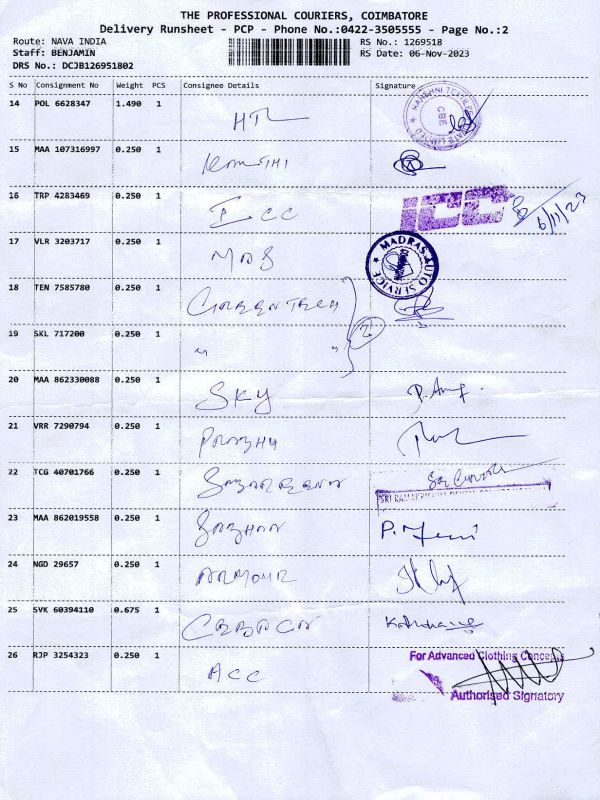 THE PROFESSIONAL COURIERS, COIMBATORE
Delivery Runsheet - PCP - Phone No.:0422-3505555 - Page No.:2
Route: NAVA INDIA RS No.: 1269518
Staff: BENJAMIN RS Date: 06-Nov-2023
DRS No.: DCJB126951802
S No Consignment No Weight PCS Consignee Details Signature
14 POL 6628347 1.490 1
15 MAA 107316997 0.250 1
16 TRP 4283469 0.250 1 ICC ICC 6/11/23
17 VLR 3203717 0.250 1 MADRAS AUTO SERVICE
18 TEN 7585780 0.250 1 GREENTECH
19 SKL 717200 0.250 1 " " 2
20 MAA 862330088 0.250 1 SKY
21 VRR 7290794 0.250 1 PRABHU
22 TCG 40701766 0.250 1
23 MAA 862019558 0.250 1
24 NGD 29657 0.250 1 ARMOUR
25 SVK 60394110 0.675 1
26 RJP 3254323 0.250 1 ACC
For Advanced Clothing Concepts
Authorised Signatory